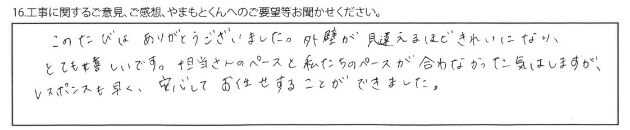 16.工事に関するご意見、ご感想、やまもとくんへのご要望等お聞かせください。
このたびは ありがとうございました。外壁が見違えるほどきれいになり、
とても嬉しいです。担当さんのペースと私たちのペースが合わなかった気はしますが、
レスポンスも早く、安心してお任せすることができました。